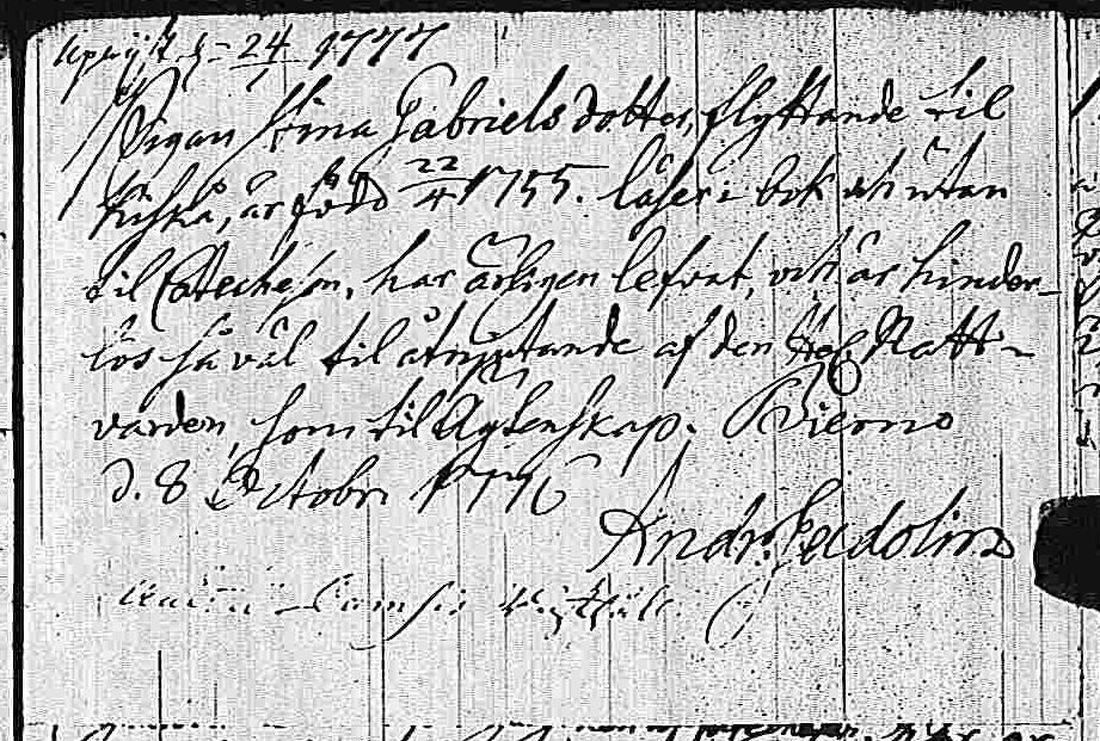 d. 24 1777
Pigan Stina Gabriels dotter, flyttande til
Kisko, är född 22/4 1755. läser i bok och utan
til Catechesen, har ärligen lefvat, och är hinder-
lös så väl til åtnjutande af den H. Natt-
varden, som til Ägtenskap. Bierno
d. 8 Octobr. 1776
Andr. Gadolin